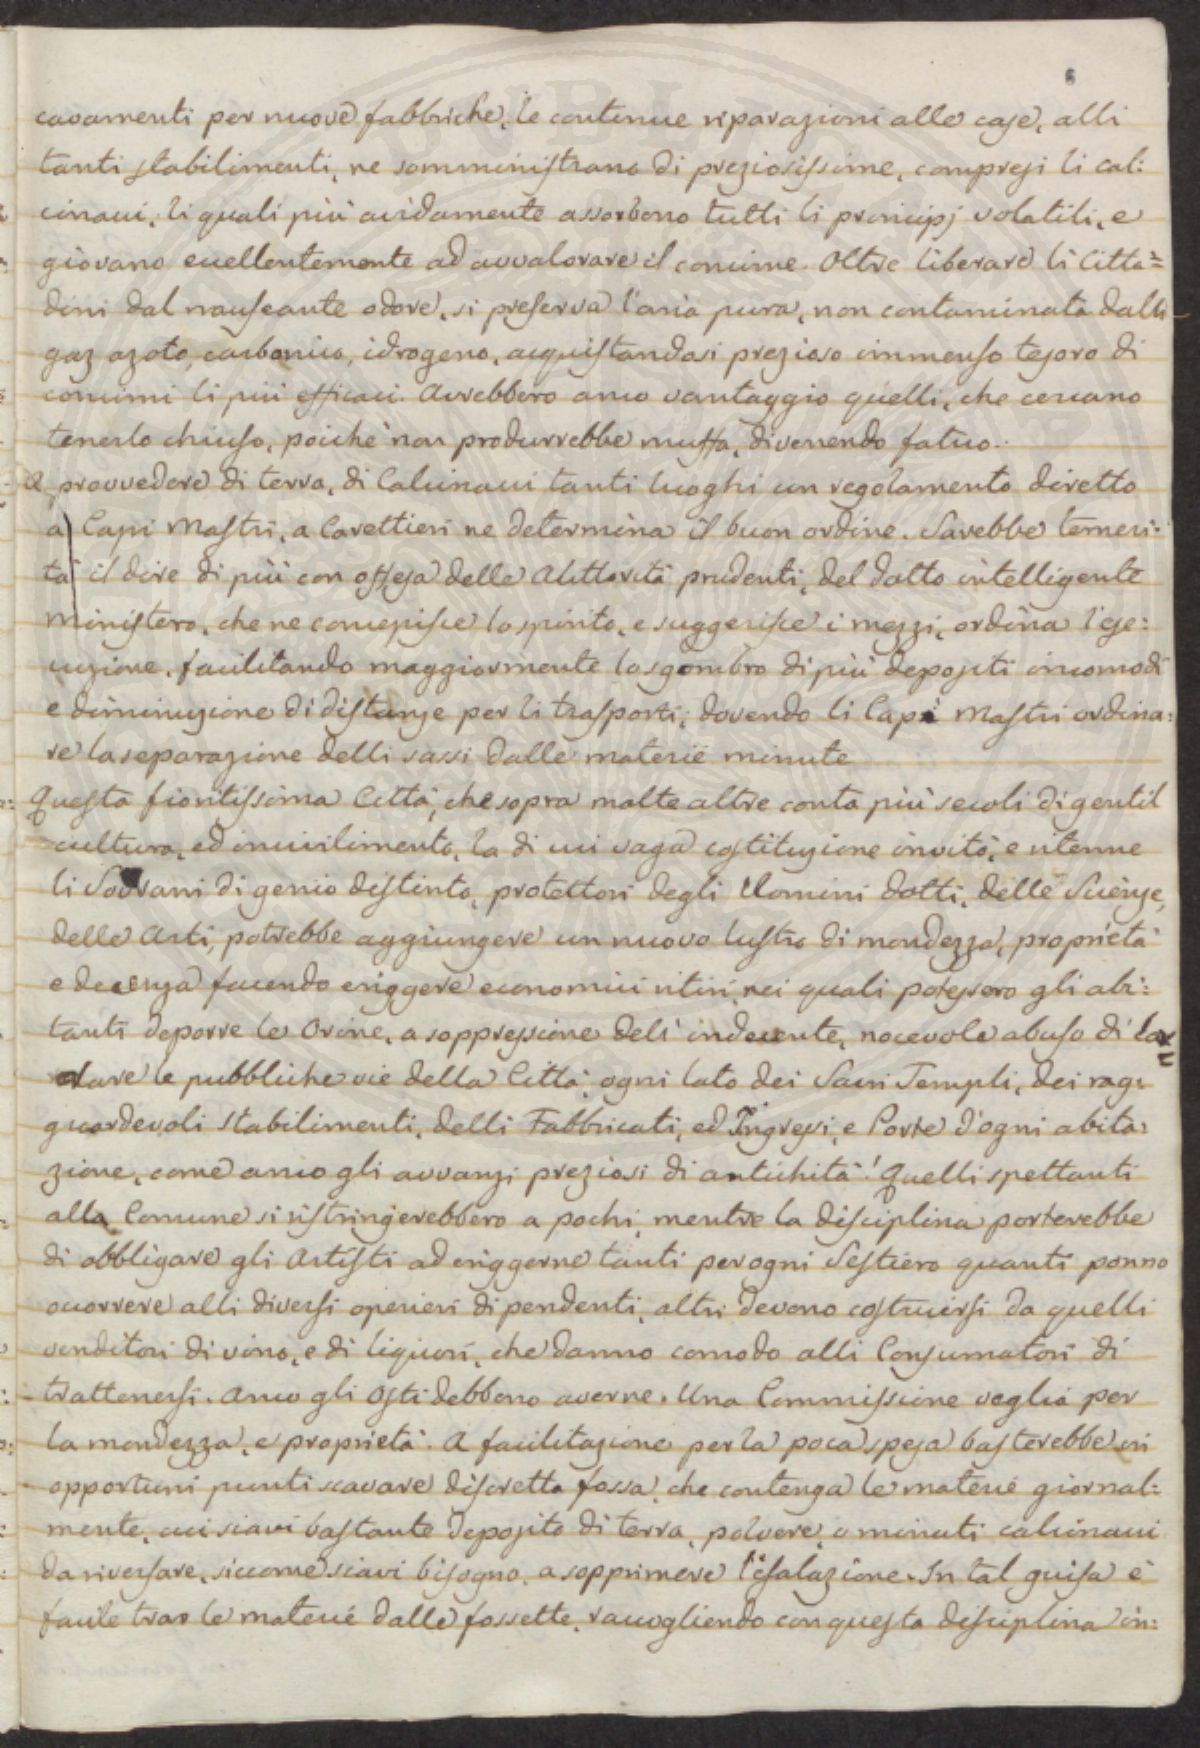 6
cavamenti per nuove fabbriche, le continue riparazioni alle case, alli
tanti stabilimenti, ne somministrano di preziosissime, compresi li cal:
cinacci, li quali più avidamente assorbono tutti li principj volatili, e
giovano eccellentemente ad avvalorare il concime. Oltre liberare li Citta=
dini dal nauseante odore, si preserva l'aria pura, non contaminata dalli
gaz azoto, carbonico, idrogeno, acquistandosi prezioso immenso tesoro di
concimi li più efficaci. Avrebbero anco vantaggio quelli, che cercano
tenerlo chiuso, poichè non produrrebbe muffa, divenendo fatuo.
A provvedere di terra, di Calcinacci tanti luoghi un regolamento diretto
a Capi Mastri, a Carettieri ne determina il buon ordine. Sarebbe temeri:
tà il dire di più con offesa delle Auttorità prudenti, del dotto intelligente
Ministero, che ne concepisce lo spirito, e suggerisce i mezzi, ordina l'ese:
cuzione, facilitando maggiormente lo sgombro di più depositi incomodi
e diminuzione di distanze per li trasporti, dovendo li Capi Mastri ordina:
re la separazione delli sassi dalle materie minute
Questa fioritissima Città, che sopra molte altre conta più secoli di gentil
cultura, ed incivilimento, la di cui vaga costituzione invitò, e ritenne
li Sovrani di genio distinto, protettori degli Uomini dotti, delle Scienze,
delle Arti, potrebbe aggiungere un nuovo lustro di mondezza, proprietà
e decenza facendo eriggere economici ritiri, nei quali potessero gli abi:
tanti deporre le Orine, a soppressione dell' indecente, nocevole abuso di lor=
dare le pubbliche vie della Città, ogni lato dei Sacri Templi, dei rag:
guardevoli stabilimenti, delli Fabbricati, ed Ingressi, e Porte d'ogni abita:
zione, come anco gli avvanzi preziosi di antichità! Quelli spettanti
alla Comune si ristringerebbero a pochi, mentre la disciplina porterebbe
di obbligare gli Artisti ad eriggerne tanti per ogni Sestiero quanti ponno
occorrere alli diversi operieri dipendenti, altri devono costruirsi da quelli
venditori di vino, e di liquori, che danno comodo alli Consumatori di
trattenersi. Anco gli Osti debbono averne. Una Commissione veglia per
la mondezza, e proprietà. A facilitazione per la poca spesa basterebbe in
opportuni punti scavare discretta fossa, che contenga le materie giornal:
mente, cui siavi bastante deposito di terra, polvere, o minuti calcinacci
da riversare, siccome siavi bisogno, a sopprimere l'esalazione. In tal guisa è
facile trar le materie dalle fossette, raccogliendo con questa disciplina in: